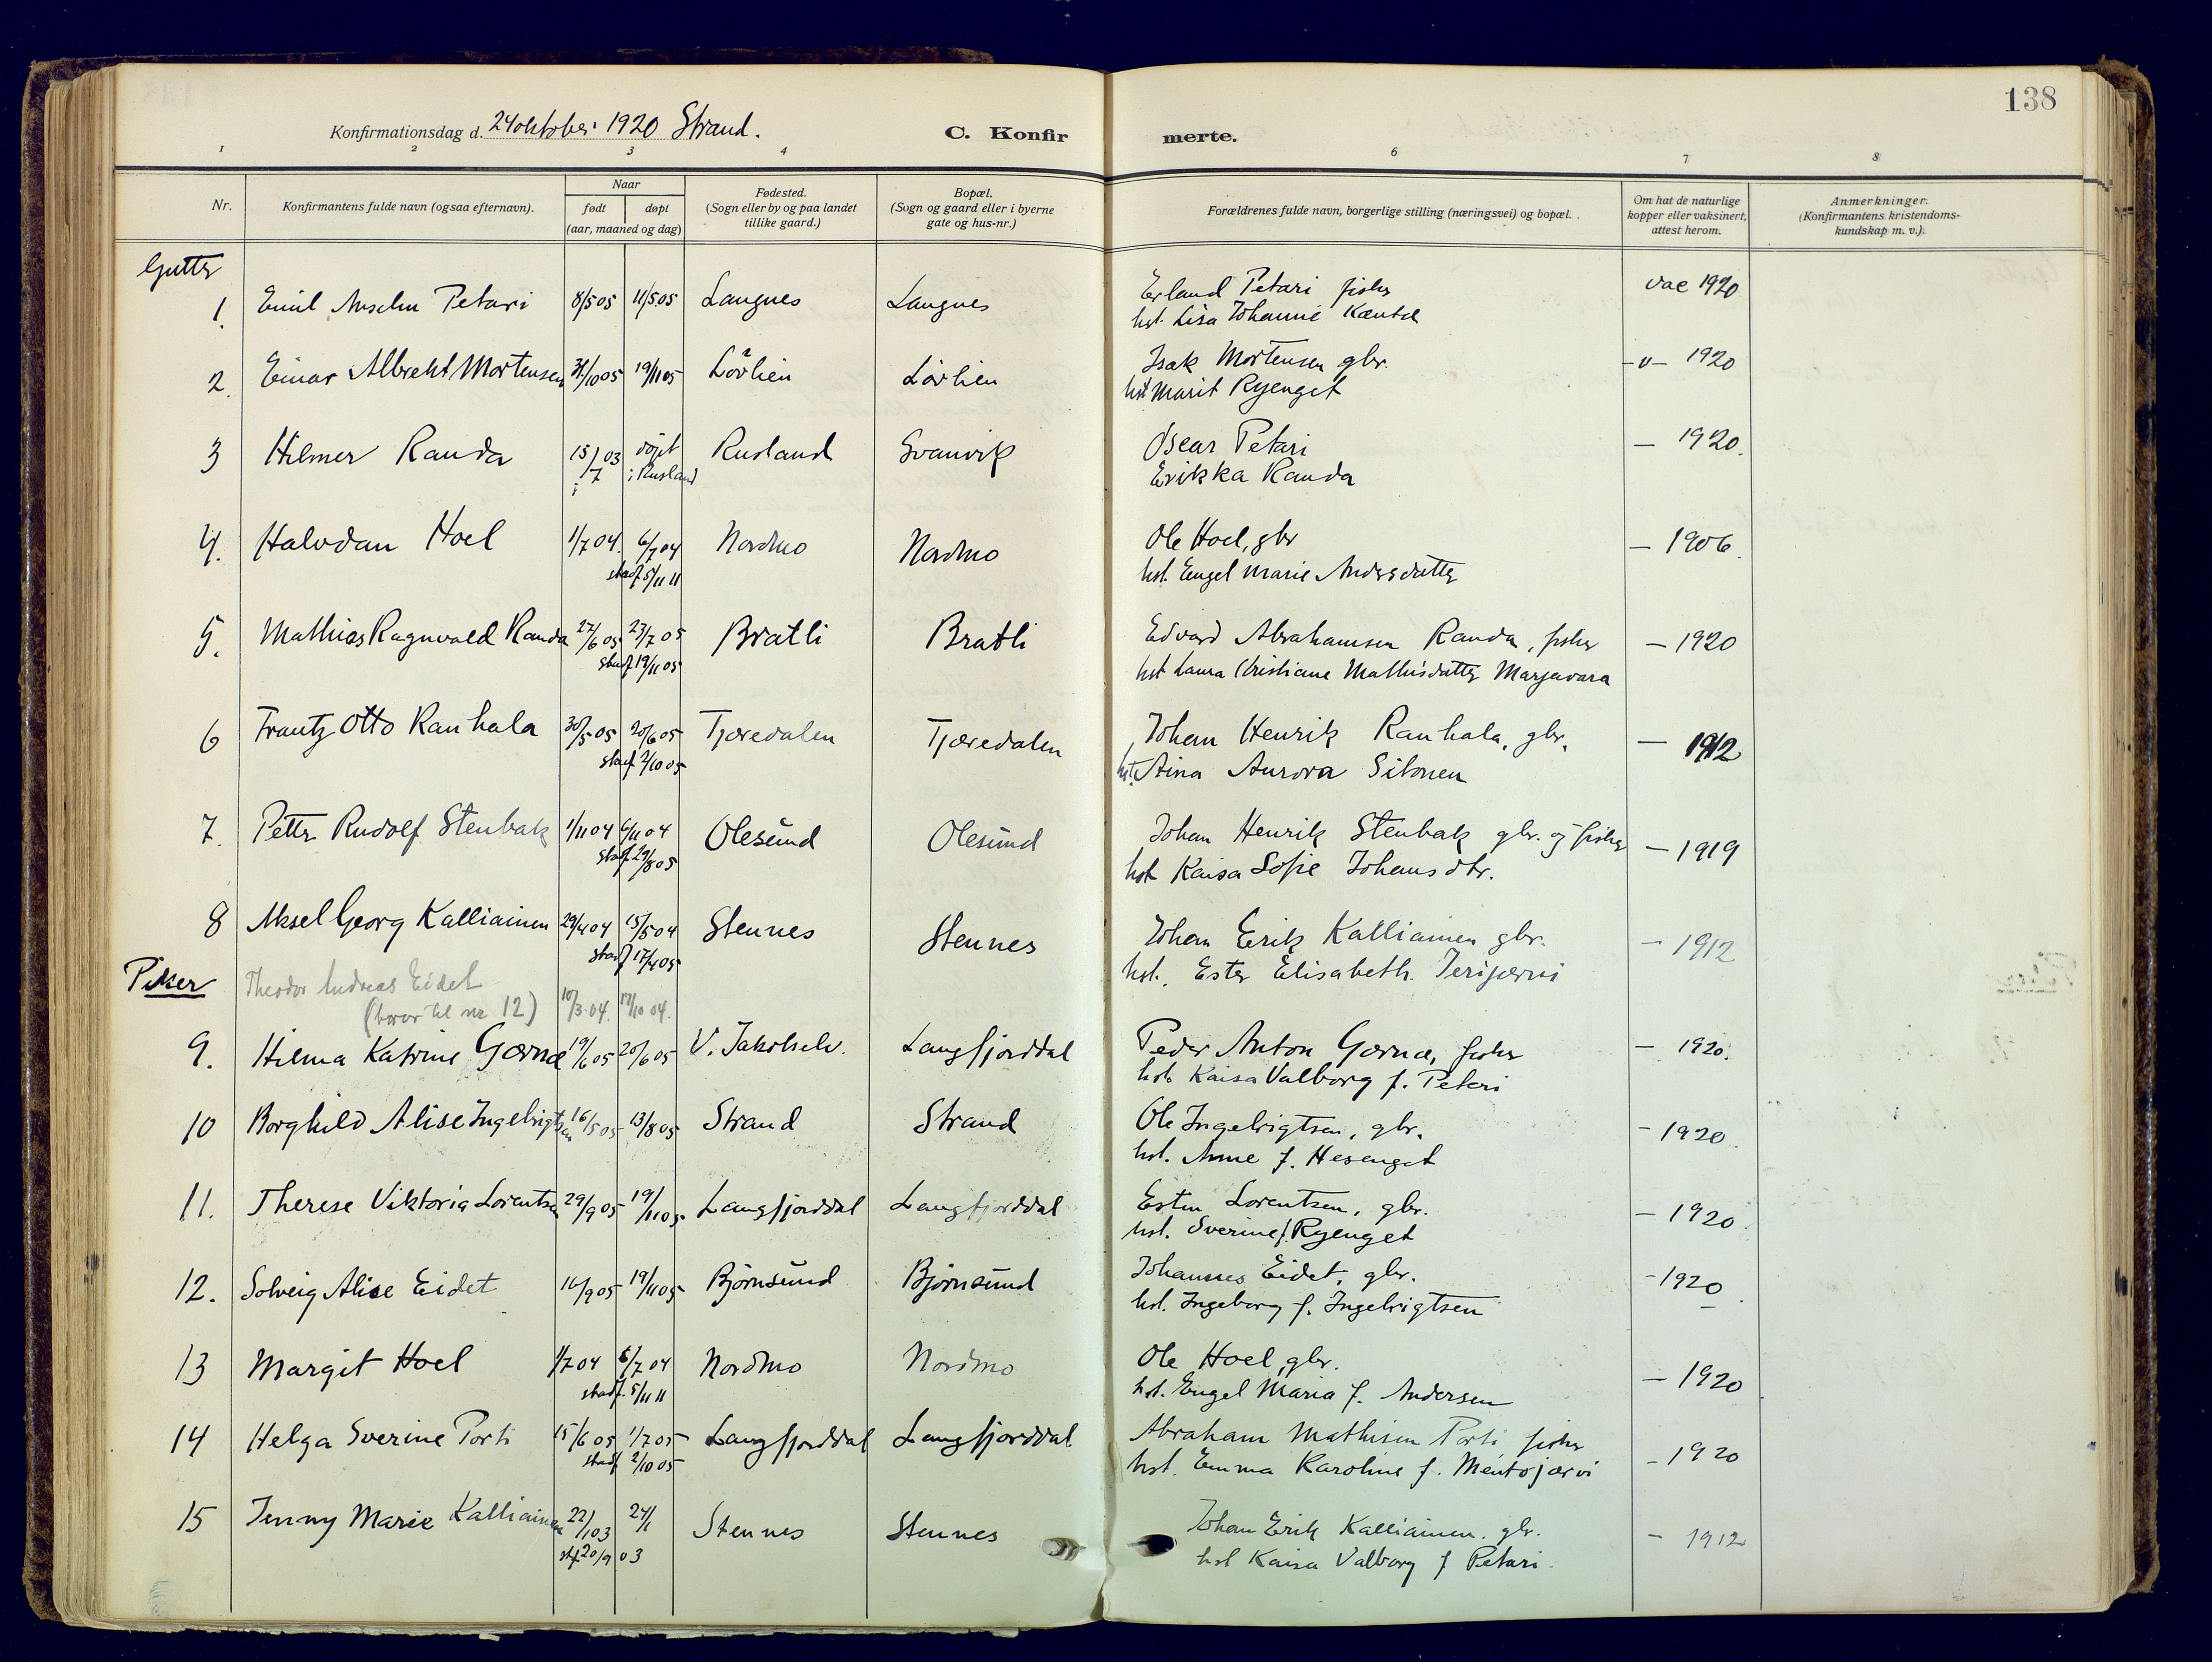 138
Konfirmationsdag d. 24 oktober 1920 Strand.
C. Konfirmerte.
1 2 3 4 6 7 8
Nr.
Konfirmantens fulde navn (ogsaa efternavn).
Naar
født
døpt
(aar, maaned og dag)
Fødested.
(Sogn eller by og paa landet
tillike gaard.)
Bopæl.
(Sogn og gaard eller i byerne
gate og hus-nr.)
Forældrenes fulde navn, borgerlige stilling (næringsvei) og bopæl.
Om hat de naturlige
kopper eller vaksinert,
attest herom.
Anmerkninger.
(Konfirmantens kristendoms-
kundskap m. v.).
Gutter
1. Emil Anselm Petari 8/5 05 11/5 05 Langnes Langnes Erland Petari fisker vac 1920
hst. Lisa Johanne
2. Einar Albrekt Mortensen 31/10 05 19/11 05 Lövlien Lövlien Isak Mortensen gbr. -v- 1920
hst Marit Ryenget
3 Hilmer Randa 15/7 03 döpt i Rusland Rusland Svanvik Oscar Petari — 1920.
Erikka Randa
4. Halvdan Hoel 1/7 04. 6/7 04 Nordmo Nordmo Ole Hoel, gbr — 1906.
stadf 5/11 11 hst. Engel Marie Andersdatter
5. Mathias Ragnvald Randa 27/6 05 23/7 05 Bratli Bratli Edvard Abrahamsen Randa, fisker — 1920
stadf 19/11 05 hst Laura Kristiane Mathisdatter Marjavara
6 Frantz Otto Rauhala 30/5 05 20/6 05 Tjæredalen Tjæredalen Johan Henrik Rauhala, gbr. — 1912
stadf 2/10 05 hst. Aina Aurora Siltonen
7. Petter Rudolf Stenbak 1/11 04 6/11 04 Olesund Olesund Johan Henrik Stenbak gbr. og fisker — 1919
stadf 29/8 05 hst Kaisa Sofie Johansdtr.
8 Aksel Georg Kalliainen 29/4 04 15/5 04 Stennes Stennes Johan Erik Kalliainen gbr. — 1912
stadf 17/4 05 hst. Ester Elisabeth Jerijærvi
Piker
Theodor Andreas Eidet
(hører til nr 12) 10/3 04. 17/10 04.
9. Hilma Katrine Gærnæ 19/6 05 20/6 05 V. Jakobselv. Langfjorddal Peder Anton Gærnæ, fisker — 1920.
hst. Kaisa Valborg f. Petari
10 Borghild Alise Ingebrigtsen 16/5 05 13/8 05 Strand Strand Ole Ingebrigtsen, gbr. — 1920.
hst. Anne f. Hesenget
11. Therese Viktoria Lorentsen 29/9 05 19/11 05 Langfjorddal Langfjorddal Esten Lorentsen, gbr. — 1920.
hst. Sverine f. Ryenget
12. Solveig Alise Eidet 16/9 05 19/11 05 Björnsund Björnsund Johannes Eidet, gbr. — 1920.
hst. Ingeborg f. Ingebrigtsen
13 Margit Hoel 1/7 04 6/7 04 Nordmo Nordmo Ole Hoel, gbr. — 1920
stadf. 5/11 11 hst. Engel Maria f. Andersen
14 Helga Sverine Porti 15/6 05 1/7 05 Langfjorddal Langfjorddal Abraham Mathisen Porti, fisker — 1920
stadf 2/10 05 hst. Emma Karoline f. Mentojærvi
15 Jenny Marie Kalliainen 22/1 03 24/1 Stennes Stennes Johan Erik Kalliainen. gbr. — 1912
stf 20/9 03 hst Kaisa Valborg f Petari.